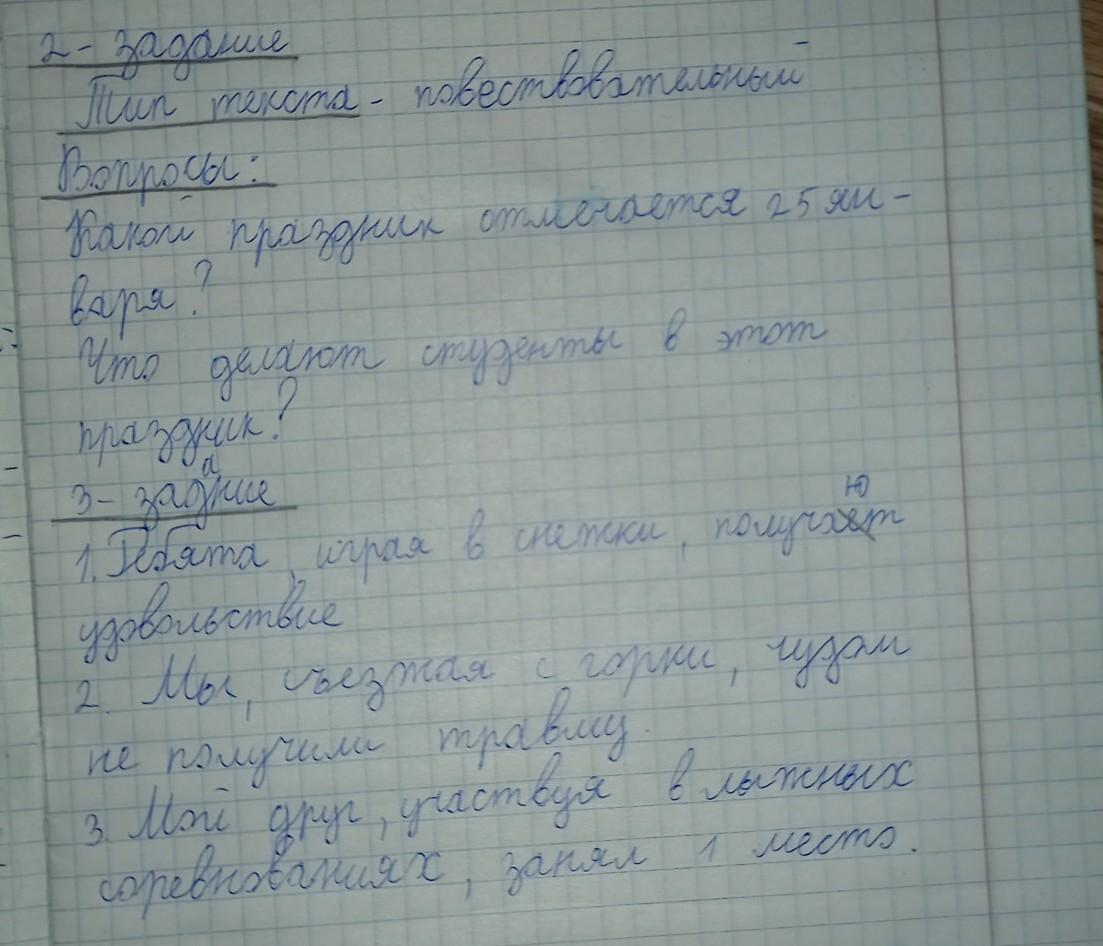 2 - задание
Тип текста - повествовательный
Вопросы:
Какой праздник отмечается 25 ян-
варя?
Что делают студенты в этот
праздник?
3 - задание
1. Ребята, играя в снежки, получают
удовольствие
2. Мы, съезжая с горки, чудом
не получили травму.
3. Мой друг, участвуя в лыжных
соревнованиях, занял 1 место.